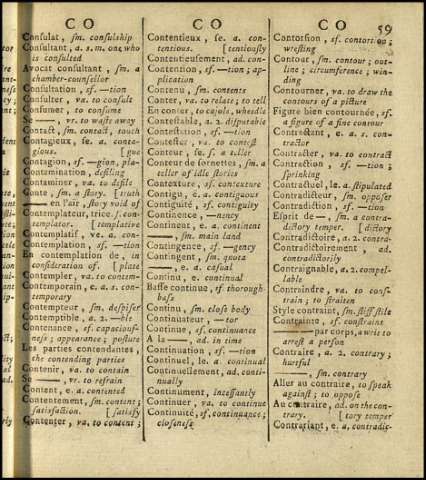 CO
CO
CO
59
Consulat, sm. consulship
Consultant, a. s. m. one who
is consulted
Avocat consultant, sm. a
chamber-counsellor
Consultation, sf. —tion
Consulter, va. to consult
Consumer, va. to consume
Se ——, vr. to waste away
Contact, sm. contact, touch
Contagieux, se. a. conta-
gious. [gue
Contagion, sf. —gion, pla-
Contamination, defiling
Contaminer, va. to defile
Conte, sm. a story. [truth
—— en l'air, story void of
Contemplateur, trice. s. con-
templator. [templative
Contemplatif, ve. a. con-
Contemplation, sf. —tion
En contemplation de, in
consideration of. [plate
Contempler, va. to contem-
Contemporain, e. a. s. con-
temporary
Contempteur, sm. despiser
Contemptible, a. 2. —ble
Contenance, sf. capacious-
ness; appearance; posture
Les parties contendantes,
the contending parties
Contenir, va. to contain
Se ——, vr. to refrain
Content, e. a. contented
Contentement, sm. content;
satisfaction. [satisfy
Contenter, va. to content;
Contentieux, se. a. con-
tentious. [tentiously
Contentieusement, ad. con-
Contention, sf. —tion; ap-
plication
Contenu, sm. contents
Conter, va. to relate; to tell
En conter, to cajole, wheedle
Contestable, a. 2. disputable
Contestation, sf. —tion
Contester, va. to contest
Conteur, se. s. a teller
Conteur de sornettes, sm. a
teller of idle stories
Contexture, sf. contexture
Contigu, ë. a. contiguous
Contiguité, sf. contiguity
Continence, —nency
Continent, e. a. continent
——, sm. main land
Contingence, sf. —gency
Contingent, sm. quota
——, e. a. casual
Continu, e. continual
Basse continue, sf. thorough-
bass
Continu, sm. close body
Continuateur, —tor
Continue, sf. continuance
A la ——, ad. in time
Continuation, sf. —tion
Continuel, le. a. continual
Continuellement, ad. conti-
nually
Continument, incessantly
Continuer, va. to continue
Continuité, sf. continuance;
closeness
Contorsion, sf. contortion;
wresting
Contour, sm. contour; out-
line; circumference; win-
ding
Contourner, va. to draw the
contours of a picture
Figure bien contournée, sf.
a figure of a fine contour
Contractant, e. a. s. con-
tractor
Contracter, va. to contract
Contraction, sf. —tion;
shrinking
Contractuel, le. a. stipulated
Contradicteur, sm. opposer
Contradiction, sf. —tion
Esprit de —, sm. a contra-
dictory temper. [dictory
Contradictoire, a. 2. contra-
Contradictoirement, ad.
contradictorily
Contraignable, a. 2. compel-
lable
Contraindre, va. to cons-
train; to straiten
Style contraint, sm. stiff stile
Contrainte, sf. constraint
—— par corps, a writ to
arrest a person
Contraire, a. 2. contrary;
hurtful
——, sm. contrary
Aller au contraire, to speak
against; to oppose
Au contraire, ad. on the con-
trary. [tory temper
Contrariant, e. a. contradic-